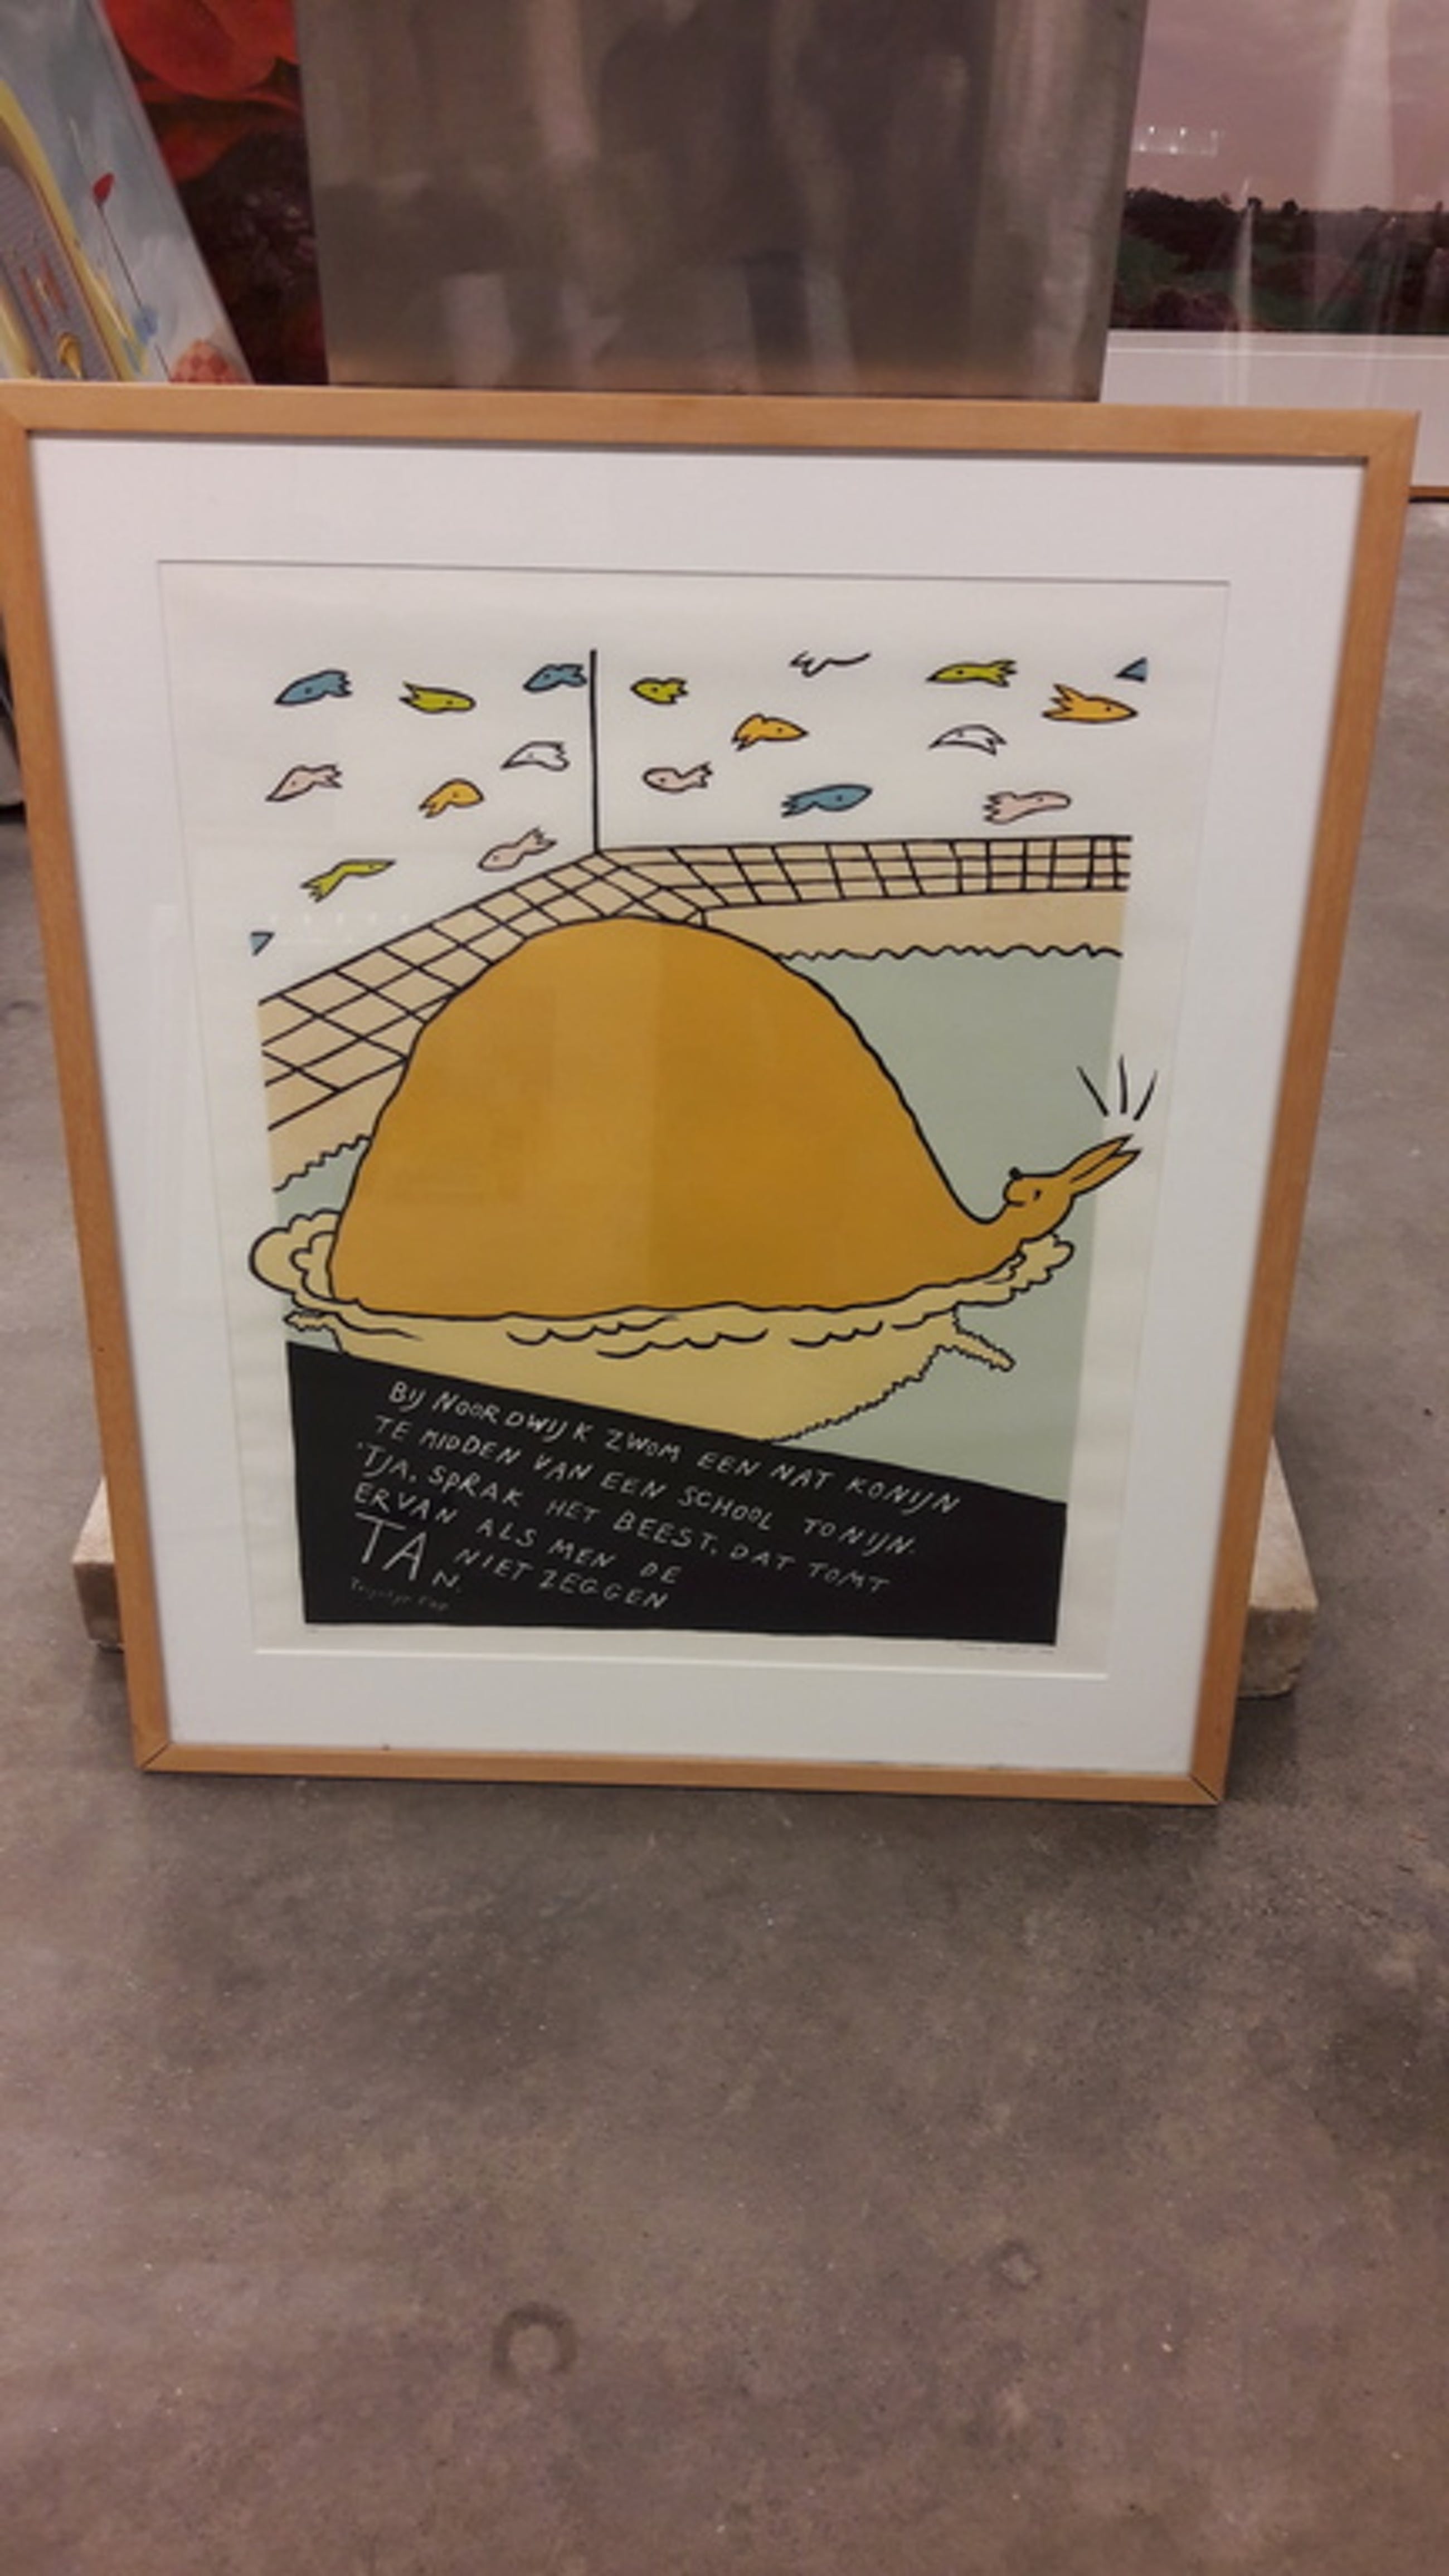 BIJ NOORDWIJK ZWOM EEN NAT KONIJN
TE MIDDEN VAN EEN SCHOOL TONIJN.
'TJA, SPRAK HET BEEST, DAT TOMT
ERVAN ALS MEN DE
TAN NIET ZEGGEN